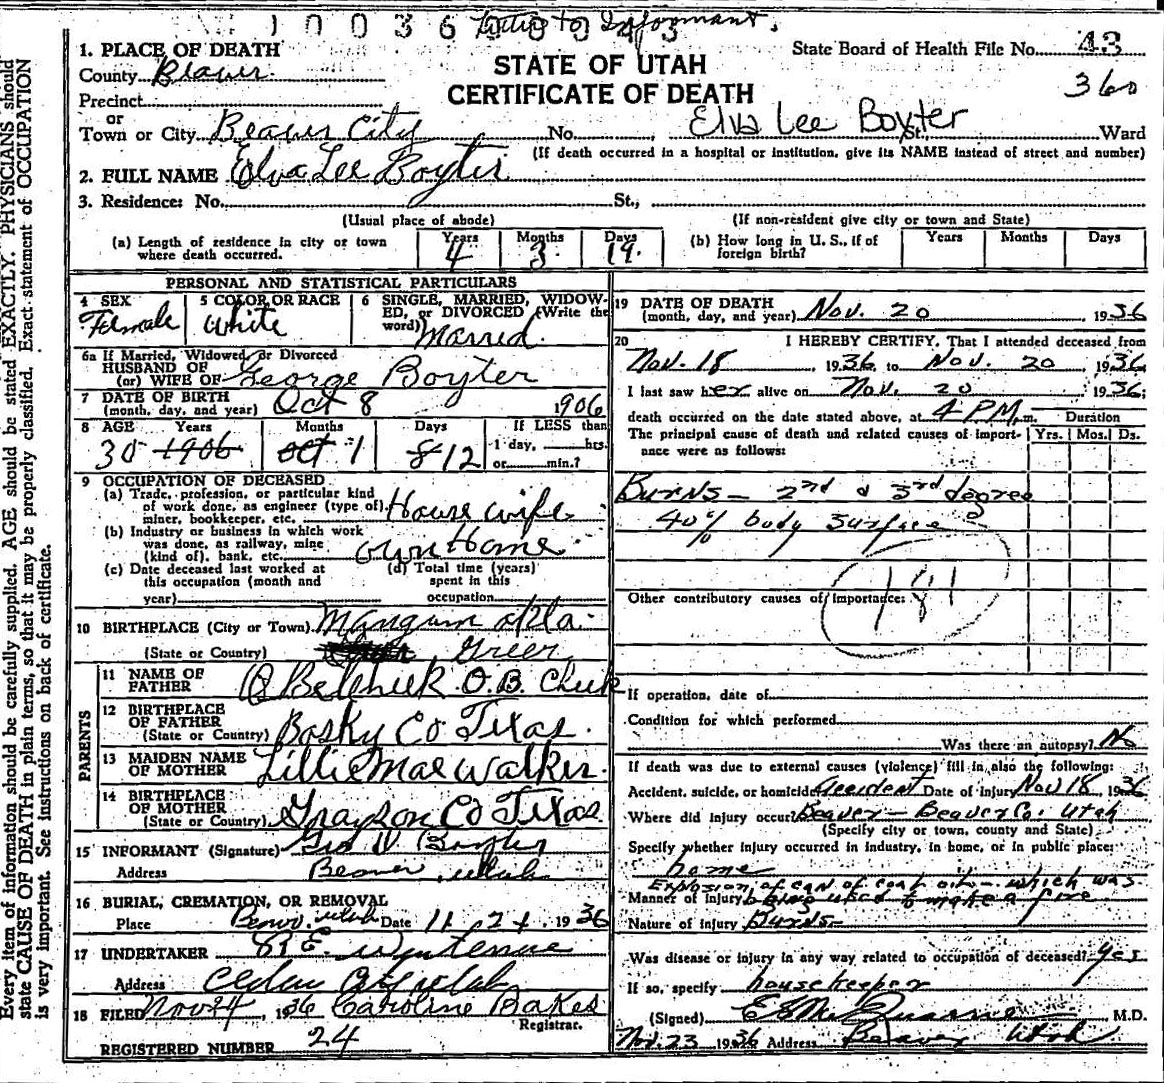 Letter to Informant.
State Board of Health File No. 43
360
STATE OF UTAH
CERTIFICATE OF DEATH
1. PLACE OF DEATH
County Beaver
Precinct
or
Town or City Beaver City No. , Elva Lee Boyter St. Ward
(If death occurred in a hospital or institution, give its NAME instead of street and number)
2. FULL NAME Elva Lee Boyter
3. Residence: No. St.,
(Usual place of abode) (If non-resident give city or town and State)
(a) Length of residence in city or town where death occurred. Years 4 Months 3 Days 19.
(b) How long in U. S., if of foreign birth? Years Months Days
PERSONAL AND STATISTICAL PARTICULARS
4 SEX Female
5 COLOR OR RACE White
6 SINGLE, MARRIED, WIDOWED, or DIVORCED (Write the word) Married.
6a If Married, Widowed, or Divorced
HUSBAND OF
(or) WIFE OF George Boyter
7 DATE OF BIRTH
(month, day, and year) Oct 8 1906
8 AGE Years Months Days If LESS than
30 1906 Oct 1 8 12 1 day, hrs.
or min.?
9 OCCUPATION OF DECEASED
(a) Trade, profession, or particular kind
of work done, as engineer (type of),
miner, bookkeeper, etc. House wife
(b) Industry or business in which work
was done, as railway, mine
(kind of), bank, etc. Own Home
(c) Date deceased last worked at
this occupation (month and
year)
(d) Total time (years)
spent in this
occupation
10 BIRTHPLACE (City or Town) Mangum Okla.
(State or Country) Greer
PARENTS
11 NAME OF
FATHER O. B. Cheek
12 BIRTHPLACE
OF FATHER
(State or Country) Bosky Co Texas
13 MAIDEN NAME
OF MOTHER Lillie Mae Walker.
14 BIRTHPLACE
OF MOTHER
(State or Country) Grayson Co Texas
15 INFORMANT (Signature) Geo W Boyter
Address Beaver, Utah
16 BURIAL, CREMATION, OR REMOVAL
Place Beaver, Utah Date 11 24 1936
17 UNDERTAKER
Address Cedar City Utah
18 FILED Nov 24, 1936 Caroline Bakes
Registrar.
REGISTERED NUMBER 24
19 DATE OF DEATH
(month, day, and year) Nov. 20 1936
20 I HEREBY CERTIFY, That I attended deceased from
Nov. 18, 1936, to Nov. 20, 1936.
I last saw her alive on Nov. 20 1936;
death occurred on the date stated above, at 4 P.M. m.
Duration
Yrs. Mos. Ds.
The principal cause of death and related causes of importance were as follows:
Burns - 2nd & 3rd degree
40% body surface
181
Other contributory causes of importance:
If operation, date of
Condition for which performed
Was there an autopsy? No
If death was due to external causes (violence) fill in also the following:
Accident, suicide, or homicide accident Date of Injury Nov 18, 1936
Where did injury occur Beaver - Beaver Co. Utah
(Specify city or town, county and State)
Specify whether injury occurred in industry, in home, or in public place:
home
Explosion of can of coal oil - which was
Manner of Injury being used to make a fire
Nature of injury Burns
Was disease or injury in any way related to occupation of deceased? yes
If so, specify housekeeper
(Signed) M.D.
Nov. 23 1936 Address Beaver Utah
Every item of information should be carefully supplied. AGE should be stated EXACTLY. PHYSICIANS should
state CAUSE OF DEATH in plain terms, so that it may be properly classified. Exact statement of OCCUPATION
is very important. See instructions on back of certificate.